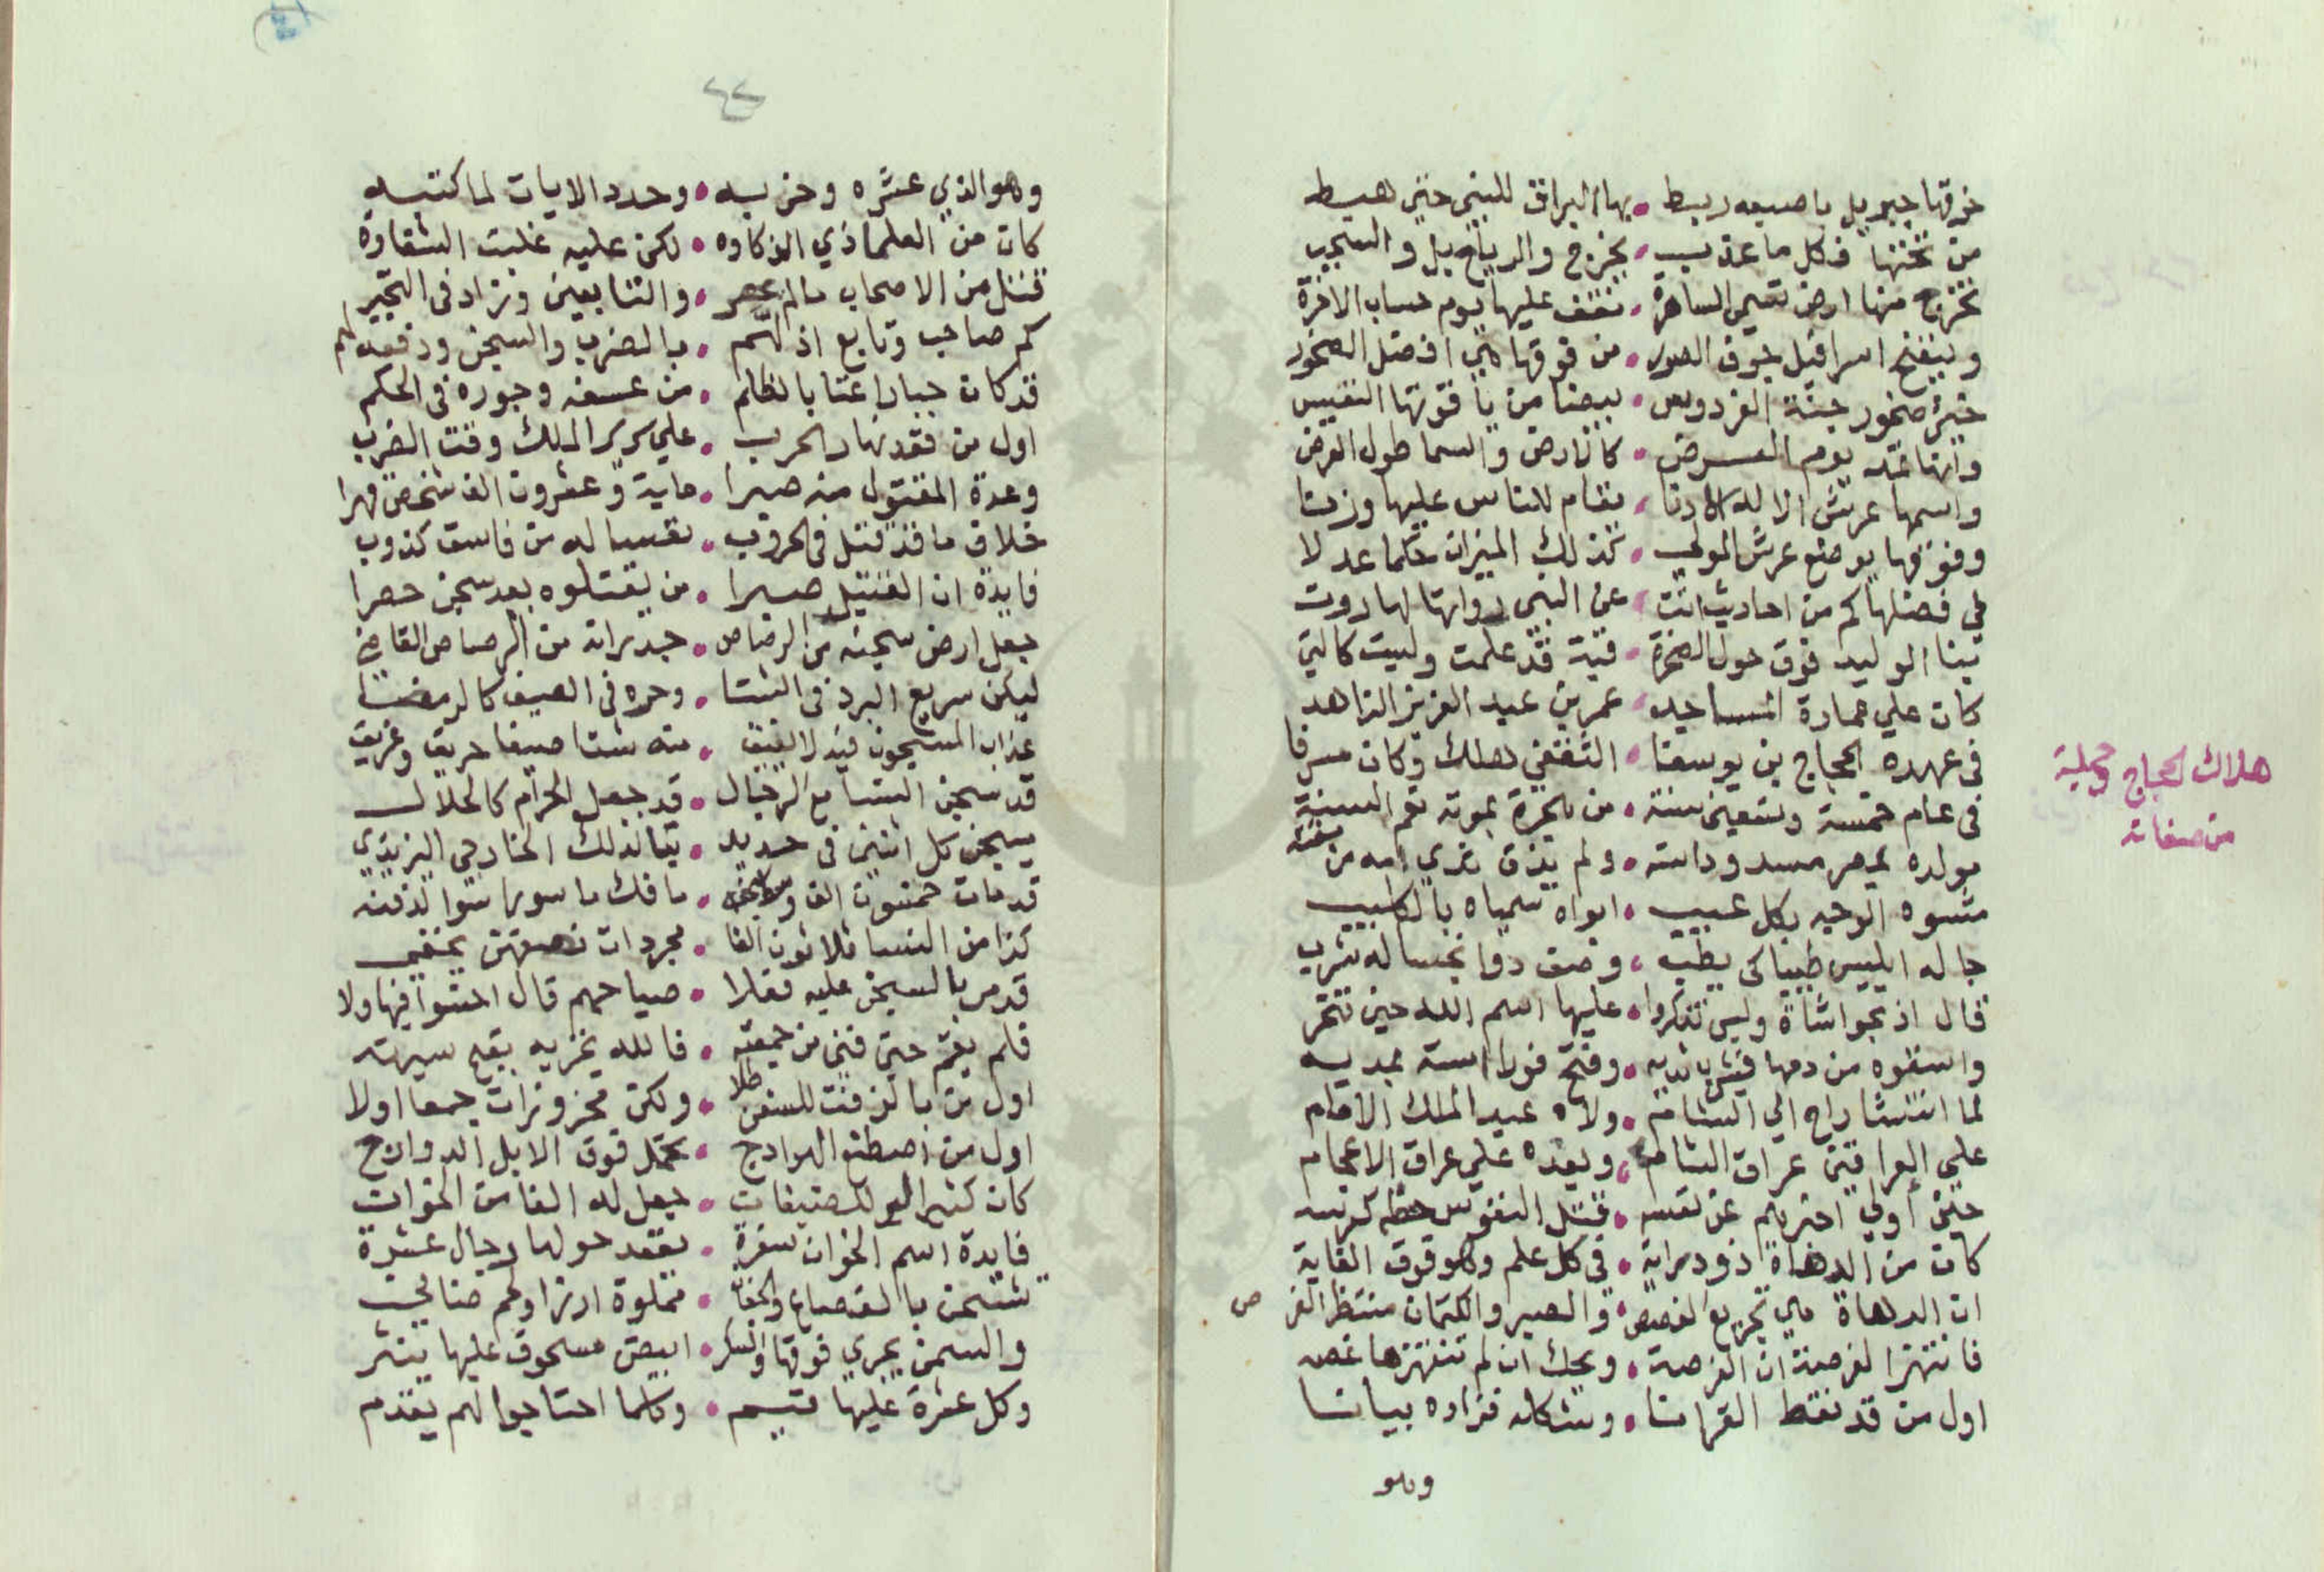 خرقها جبريل باصبعه ربط • بها البراق للنبي حين هبط
من تحتها فكل ما عذب • يخرج والرياح بل والسحب
تخرج منها ارض تسمي الساهرة • نقف عليها يوم حساب الاخرة
وينفخ اسرافيل جوف الصور • من فوقها هي افضل الصخور
خير صخور جنة الفردوس • بيضا من ياقوتها النفيس
وانها تمد يوم العرض • كالارض والسما طول العرض
واسمها عرش الاله الادنا • تقام للناس عليها وزنا
وفوقها يوضع عرش المولي • كذلك الميزان حكما عدلا
في فضلها كم من احاديث اتت • عن النبي رواتها لها روت
بنا الوليد فوق حول الصخرة • قبة قد علمت وليست كالتي
كان علي عمارة المساجد • عمر بن عبد العزيز الزاهد
في عهده الحجاج بن يوسفا • الثقفي هلك وكان مسرفا
في عام خمسة وتسعين سنة • من هجرة بموته تم السنة
مولده بمصر مسدود استه • ولم يذق ثدي امه من بغته
مشوه الوجه بكل عيب • ابواه سمياه بالكليب
جا له ابليس طبيبا كي يطب • وصف دوا نجسا له شرب
قال اذبحوا شاة وليس تذكروا • عليها اسم الله حين تنحر
واسقوه من دمها فيشف بالدبه • وفتح فورا استه بمديه
لما انتشا راح الي الشام • ولاه عبد الملك الامام
علي العراقين عراق الشام • وبعده علي عراق الاعجام
حتي اولي اخبرهم عن نفسه • قتل النفوس حظه كعرسه
كان من الدهاة ذو دراية • في كل علم وهو فوق الغاية
ان الدهاة هي تجريع الغصص • والصبر والكتمان منتظر الفرص
فانتهز الفرصة ان الفرصة • ويحك ان لم تنتهزها غصه
اول من قد نقط القرانا • وشكله فزاده بيانا
وهو
هلاك الحجاج وجملة
من صفاته
٤٢
وهو الذي عشره وحزبه • وحدد الايات لما كتبه
كان من العلما ذي الذكاوه • لكن عليه غلبت الشقاوة
قتل من الاصحاب ما لم يحصر • والتابعين وزاد في التجبر
كم صاحب وتابع اذلهم • بالضرب والسجن ودفعه لهم
قد كان جبارا عتا بالظلم • من عسفه وجوره في الحكم
اول من فقد نهار الحرب • علي سرير الملك وقت الضرب
وعدة المقتول منه صبرا • ماية وعشرون الف شخص قهرا
خلاف ما قد قتل في الحروب • تعسا له من فاسق كذوب
فايدة ان القتيل صبرا • من يقتلوه بعد سجن حصرا
جعل ارض سجنه من الرصاص • جدرانه من الرصاص القاص
ليكن سريع البرد في الشتا • وحره في الصيف كالرمضا
عذاب المسجون فيه لا يفيق • منه شتا صيفا حريق وغريق
قد سجن النسا مع الرجال • قد جعل الحرام كالحلال
يسجن كل اثنين في حديد • تبا لذلك الخارجي اليزيدي
قد مات خمسون الف وسط سجنه • ما فك ماسورا سوا لدفنه
كذا من النسا ثلاثون الفا • مجردات نصفهن يخفي
قد مر بالسجن عليه فعلا • صياحهم قال اخسوا فيها ولا
فلم يقم حتي فني من جمعته • فالله يخزيه بقبح سيرته
اول من بالزفت للسفن طلا • ولكن محزوزات جمعا اولا
اول من اصطنع الهوادج • تحمل فوق الابل الدوارج
كان كثير البر للضيفان • جعل له الفا من الخوان
فايدة اسم الخوان سفرة • يقعد حولها رجال عشرة
تشحن بالقصاع والجفان • مملوة ارزا ولحم ضاني
والسمن يجري فوقها والسكر • ابيض مسحوق عليها ينثر
وكل عشرة عليها قسيم • وكلما احتاجوا لهم يقدم